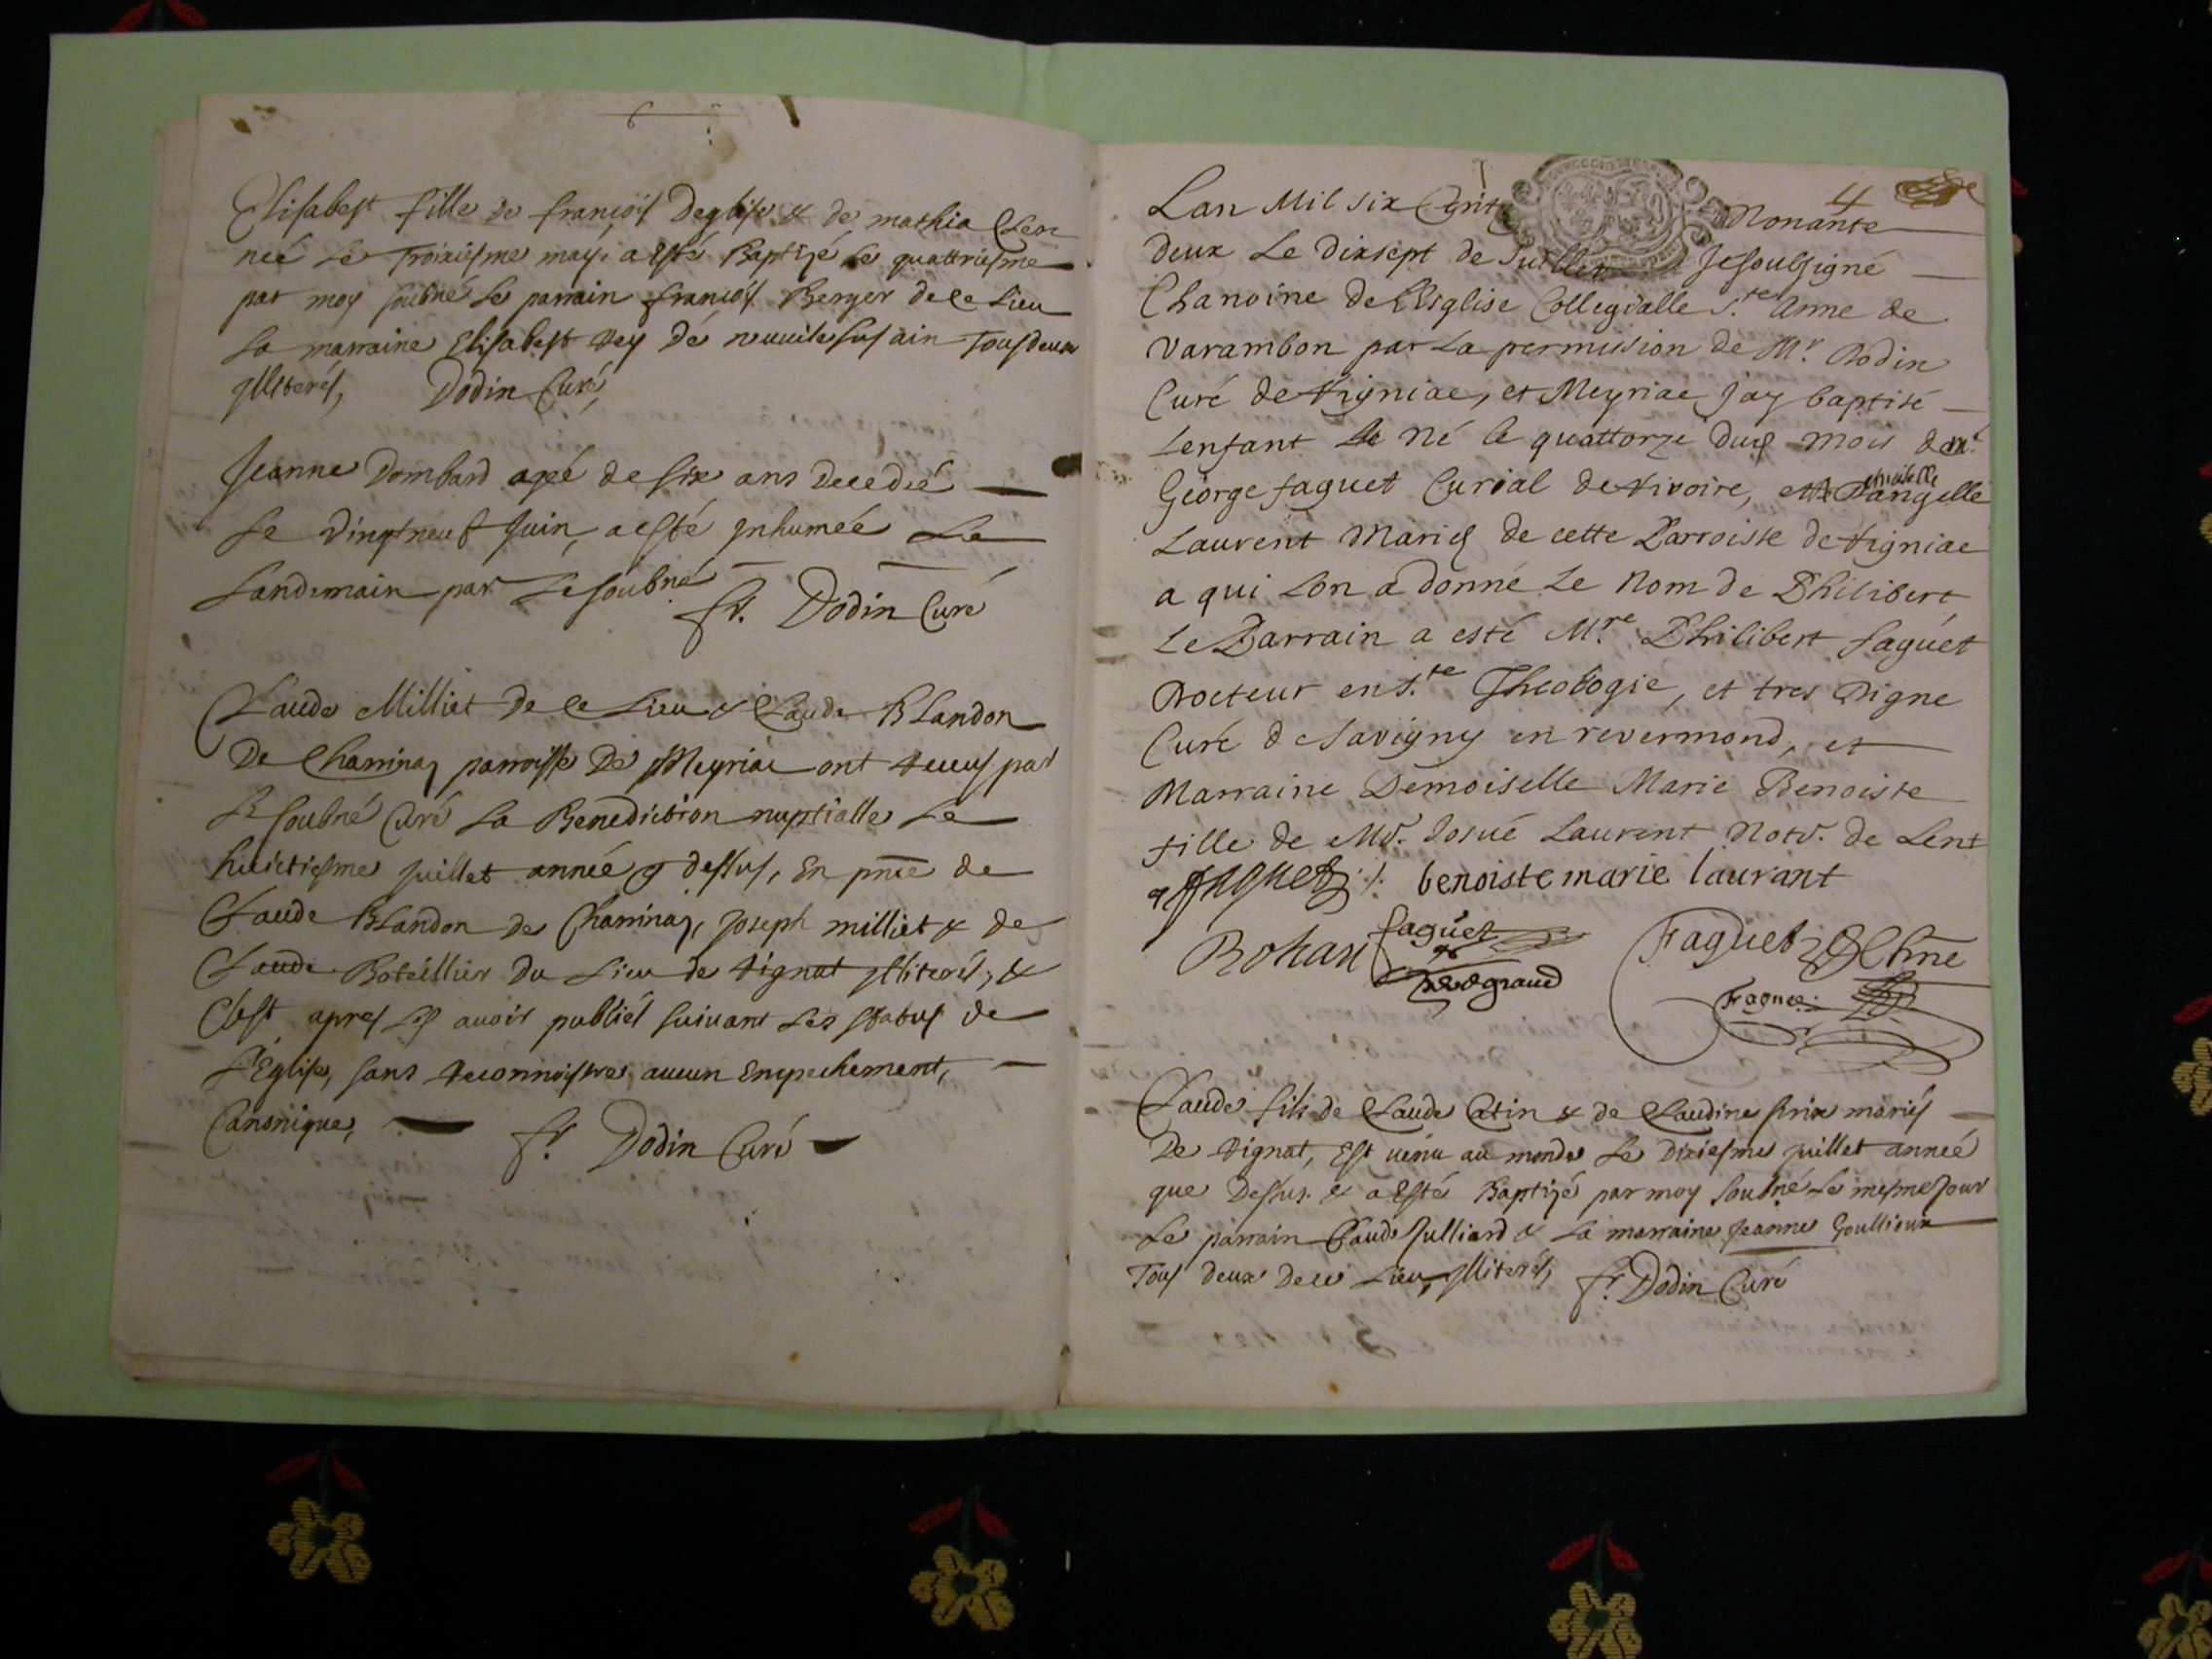 Elisabest fille de françois Deglise & de mathia Clerc
neé le troixiesme may, a esté Baptizé le quattriesme
par moy soubné le parrain françois Berger de ce lieu
la marraine Elisabest Rey de neuuile sus ain tous deux
illiterés, Dodin Curé,
Jeanne Dombard ageé de six ans decedeé
le vingtneuf Juin, a esté inhumée le
landemain par le soubné
fr. Dodin Curé
Claude Milliet de ce lieu & Claude Blandon
de Charinaz parroisse de Meyriac ont receus par
le soubné Curé la Benediction nuptialle le
huictiesme juillet année q dessus, En pnce de
Claude Blandon de Charinaz, Joseph milliet & de
Claude Boteillier du lieu de Vignat illiterés, &
C'est apres les auoir publiés suiuant les status de
l'Eglise, sans reconnoistre aucun Empechement,
Canonique, fr. Dodin Curé
4
Lan Mil six Cent Nonante
deux le dixsept de Juillet Je soussigné
Chanoine de l'Esglise Collegialle S.te Anne de
Varambon par la permission de Mr. Dodin
Curé de Vigniac, et Meyriac Jay baptisé
Lenfant né le quattorze dud mois de mr.
George faguet Curial de Rivoire, et dangelle
Laurent Mariés de cette Parroisse de Vigniac
a qui lon a donné le Nom de Philibert
Le Parrain a esté Mre. Philibert faguet
Docteur en S.te Theologie, et tres digne
Curé de Savigny en revermond, et
Marraine Demoiselle Marie Benoiste
fille de Mr. Josué Laurent Notr. de Lent
faguet benoiste marie laurant
Rohan faguet Faguet
Faguet
Claude fils de Claude Catin & de Claudine mariés
de Vignat, Est uénu au monde le dixiesme juillet anneé
que dessus. & a esté Baptizé par moy soubné le mesme jour
le parrain Claude Julliard & la marraine Jeanne Goullioux
Tous deux de ce lieu, illiterés, fr. Dodin Curé